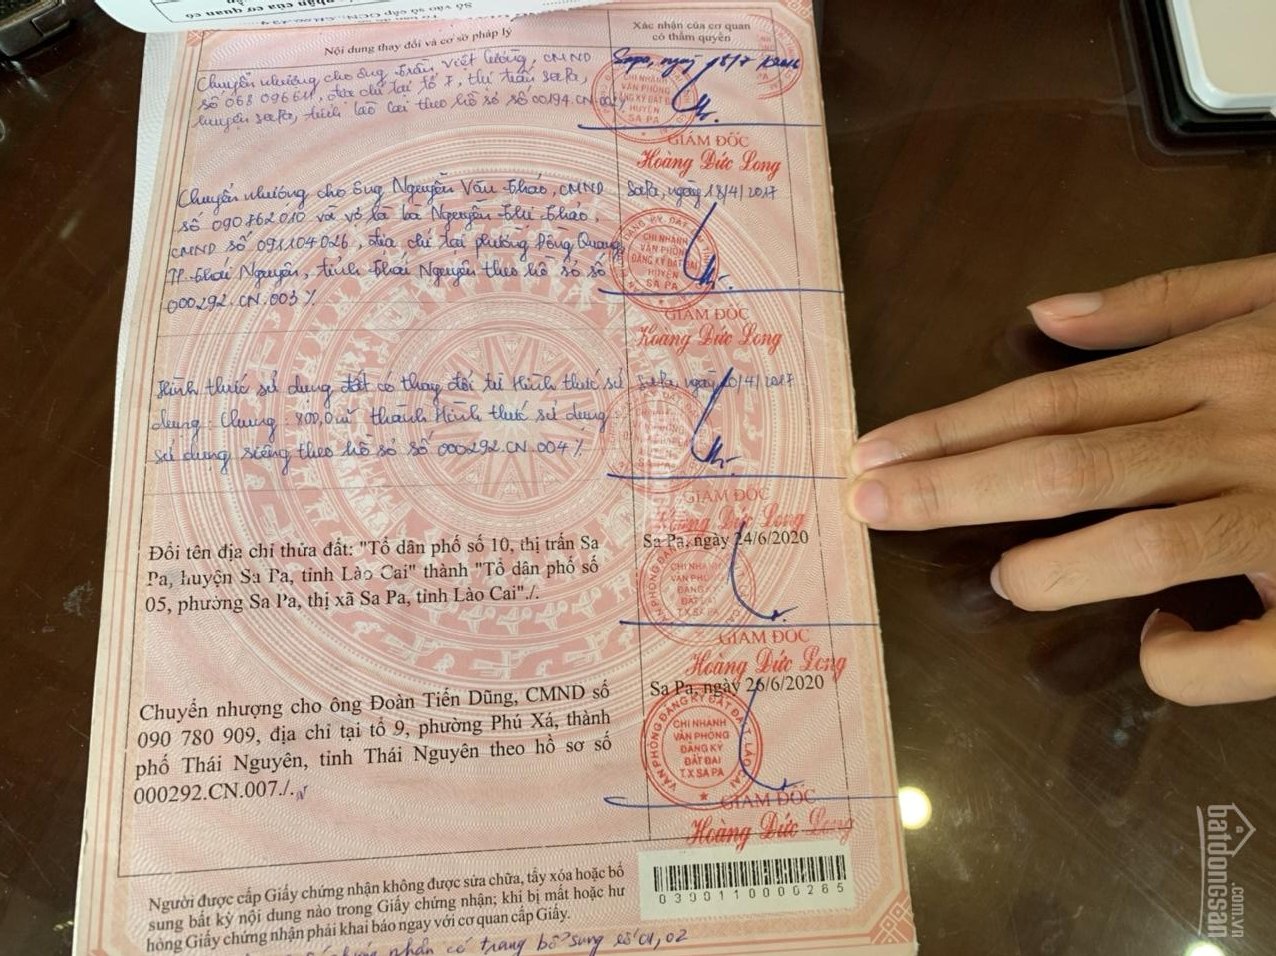 Nội dung thay đổi và cơ sở pháp lý
Xác nhận của cơ quan
có thẩm quyền
Chuyển nhượng cho ông Trần Việt Cường, CMND
số 063 096611, địa chỉ tại tổ 7, thị trấn Sa Pa,
huyện Sa Pa, tỉnh Lào Cai theo hồ sơ số 00194.CN.002
Sapa, ngày 15/7/2016
CHI NHÁNH
VĂN PHÒNG
ĐĂNG KÝ ĐẤT ĐAI
HUYỆN
SA PA
GIÁM ĐỐC
Hoàng Đức Long
Chuyển nhượng cho ông Nguyễn Văn Thảo, CMND
số 090762010 và vợ là bà Nguyễn Thị Thảo,
CMND số 091104026, địa chỉ tại phường Đồng Quang,
TP. Thái Nguyên, tỉnh Thái Nguyên theo hồ sơ số
000292.CN.003%
SaPa, ngày 18/4/2017
CHI NHÁNH
VĂN PHÒNG
ĐĂNG KÝ ĐẤT ĐAI
HUYỆN
SA PA
GIÁM ĐỐC
Hoàng Đức Long
Hình thức sử dụng đất có thay đổi từ Hình thức sử
dụng: Chung: 800,0m² thành Hình thức sử dụng:
sử dụng riêng theo hồ sơ số 000292.CN.004%
SaPa, ngày 20/4/2017
GIÁM ĐỐC
Hoàng Đức Long
Đổi tên địa chỉ thửa đất: "Tổ dân phố số 10, thị trấn Sa
Pa, huyện Sa Pa, tỉnh Lào Cai" thành "Tổ dân phố số
05, phường Sa Pa, thị xã Sa Pa, tỉnh Lào Cai"./.
Sa Pa, ngày 24/6/2020
CHI NHÁNH
VĂN PHÒNG
ĐĂNG KÝ
ĐẤT ĐAI
T.X SA PA
GIÁM ĐỐC
Hoàng Đức Long
Chuyển nhượng cho ông Đoàn Tiến Dũng, CMND số
090 780 909, địa chỉ tại tổ 9, phường Phú Xá, thành
phố Thái Nguyên, tỉnh Thái Nguyên theo hồ sơ số
000292.CN.007./.
Sa Pa, ngày 26/6/2020
VĂN PHÒNG ĐĂNG KÝ ĐẤT ĐAI T. LÀO CAI
CHI NHÁNH
VĂN PHÒNG
ĐĂNG KÝ
ĐẤT ĐAI
T.X SA PA
GIÁM ĐỐC
Hoàng Đức Long
Người được cấp Giấy chứng nhận không được sửa chữa, tẩy xóa hoặc bổ
sung bất kỳ nội dung nào trong Giấy chứng nhận; khi bị mất hoặc hư
hỏng Giấy chứng nhận phải khai báo ngay với cơ quan cấp Giấy.
0300110000265
chứng nhận có trang bổ sung số 01, 02
batdongsan
.com.vn